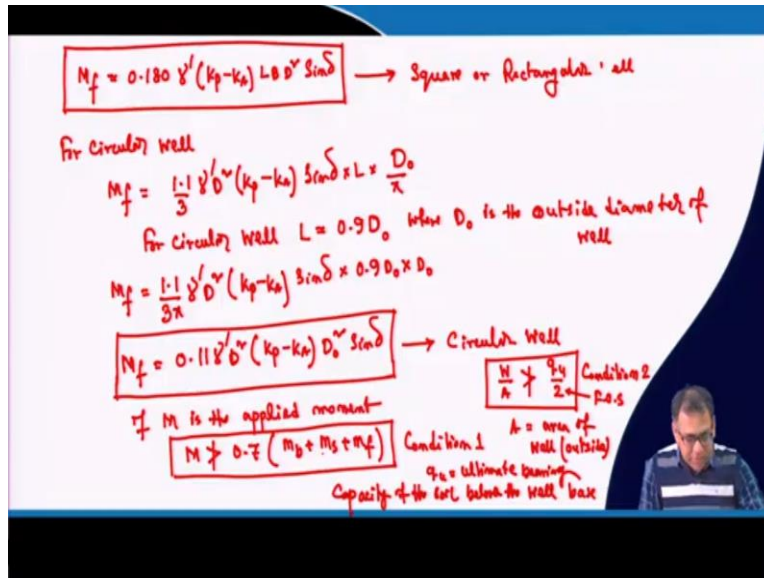 M_f = 0.180 γ' (K_p - K_A) L B D² Sin δ → Square or Rectangular
For circular well
M_f = 1.1/3 γ' D² (K_p - K_A) Sin δ × L × D_o/π
For circular well L = 0.9 D_o where D_o is the outside diameter of well
M_f = 1.1/3π γ' D² (K_p - K_A) Sin δ × 0.9 D_o × D_o
M_f = 0.11 γ' D² (K_p - K_A) D_o² Sin δ → Circular Well
W/A ≯ q_u/2 Condition 2
F.O.S
If M is the applied moment
A = area of well (outside)
M ≯ 0.7 (M_b + M_s + M_f) Condition 1
q_u = ultimate bearing
Capacity of the soil below the well base